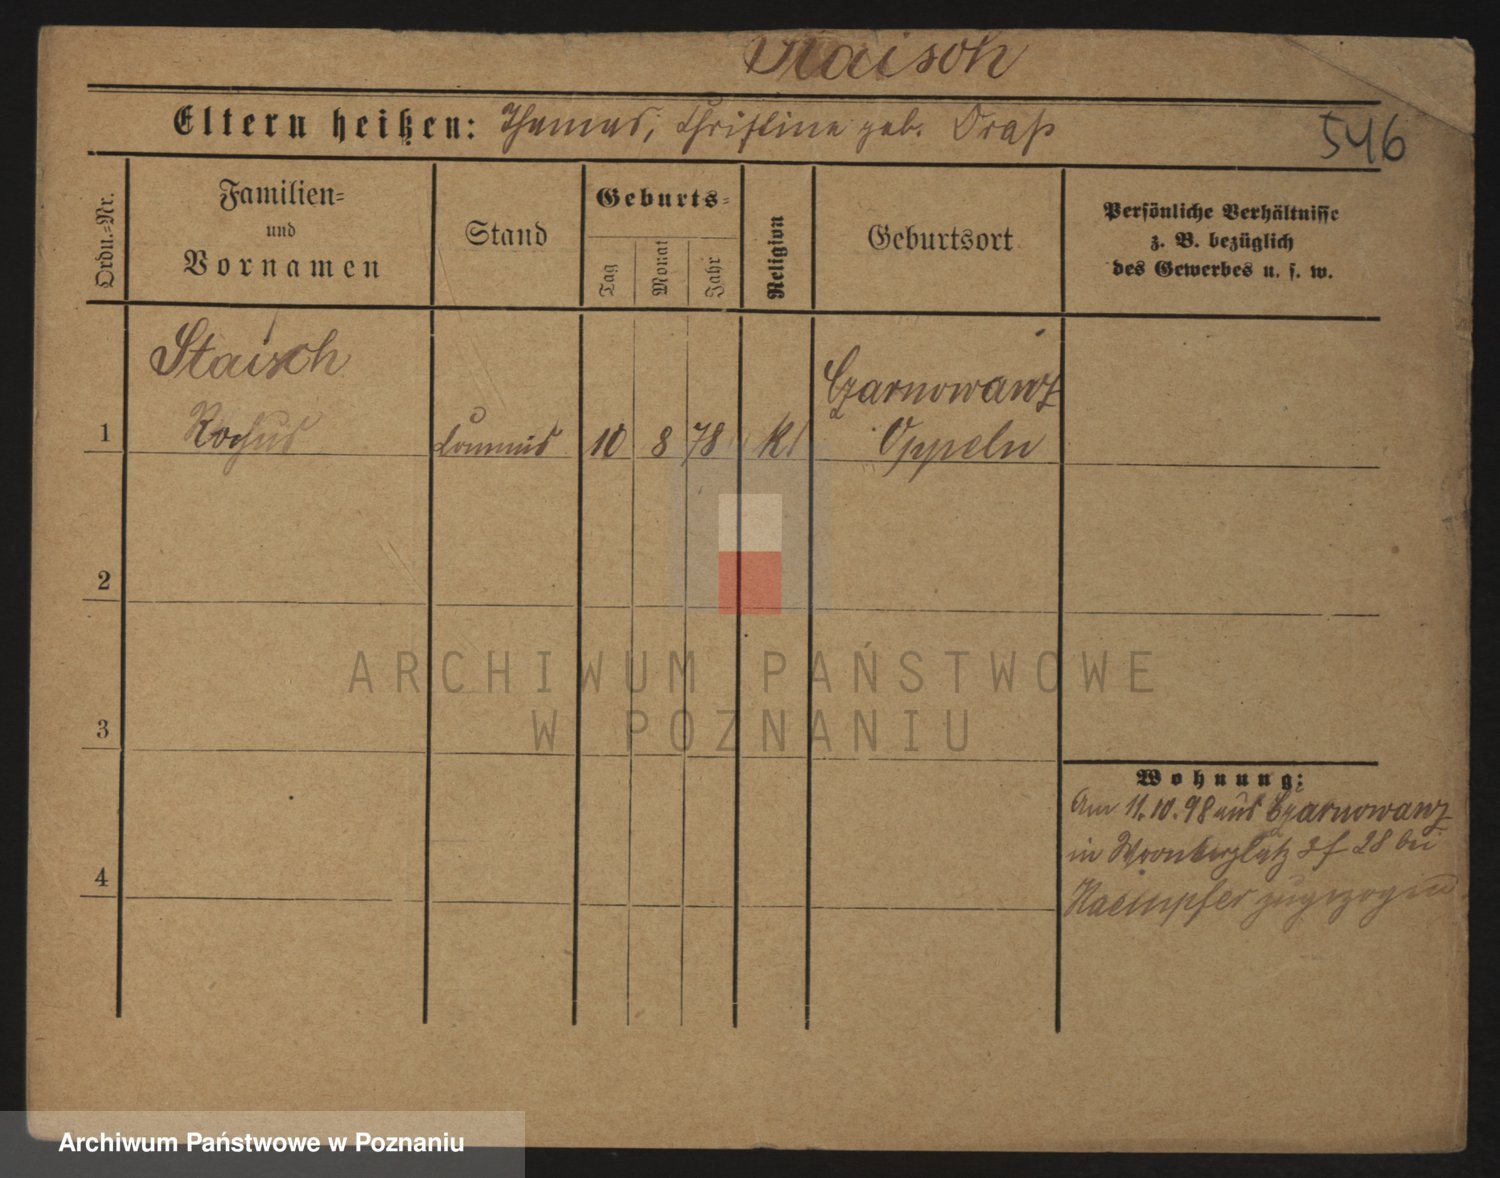 Staisch
Eltern heißen: Thomas, Christine geb. Draß
546
Ordn.=Nr.
Familien=
und
Vornamen
Stand
Geburts=
Tag
Monat
Jahr
Religion
Geburtsort
Persönliche Verhältnisse
z. B. bezüglich
des Gewerbes u. s. w.
Staisch Czarnowanz
1 Rochus Commis 10 8 78 k Oppeln
2
3
4
Wohnung:
Am 11.10.98 aus Czarnowanz
in 28 bei
Kaempfer zugezogen
ARCHIWUM PAŃSTWOWE
W POZNANIU
Archiwum Państwowe w Poznaniu